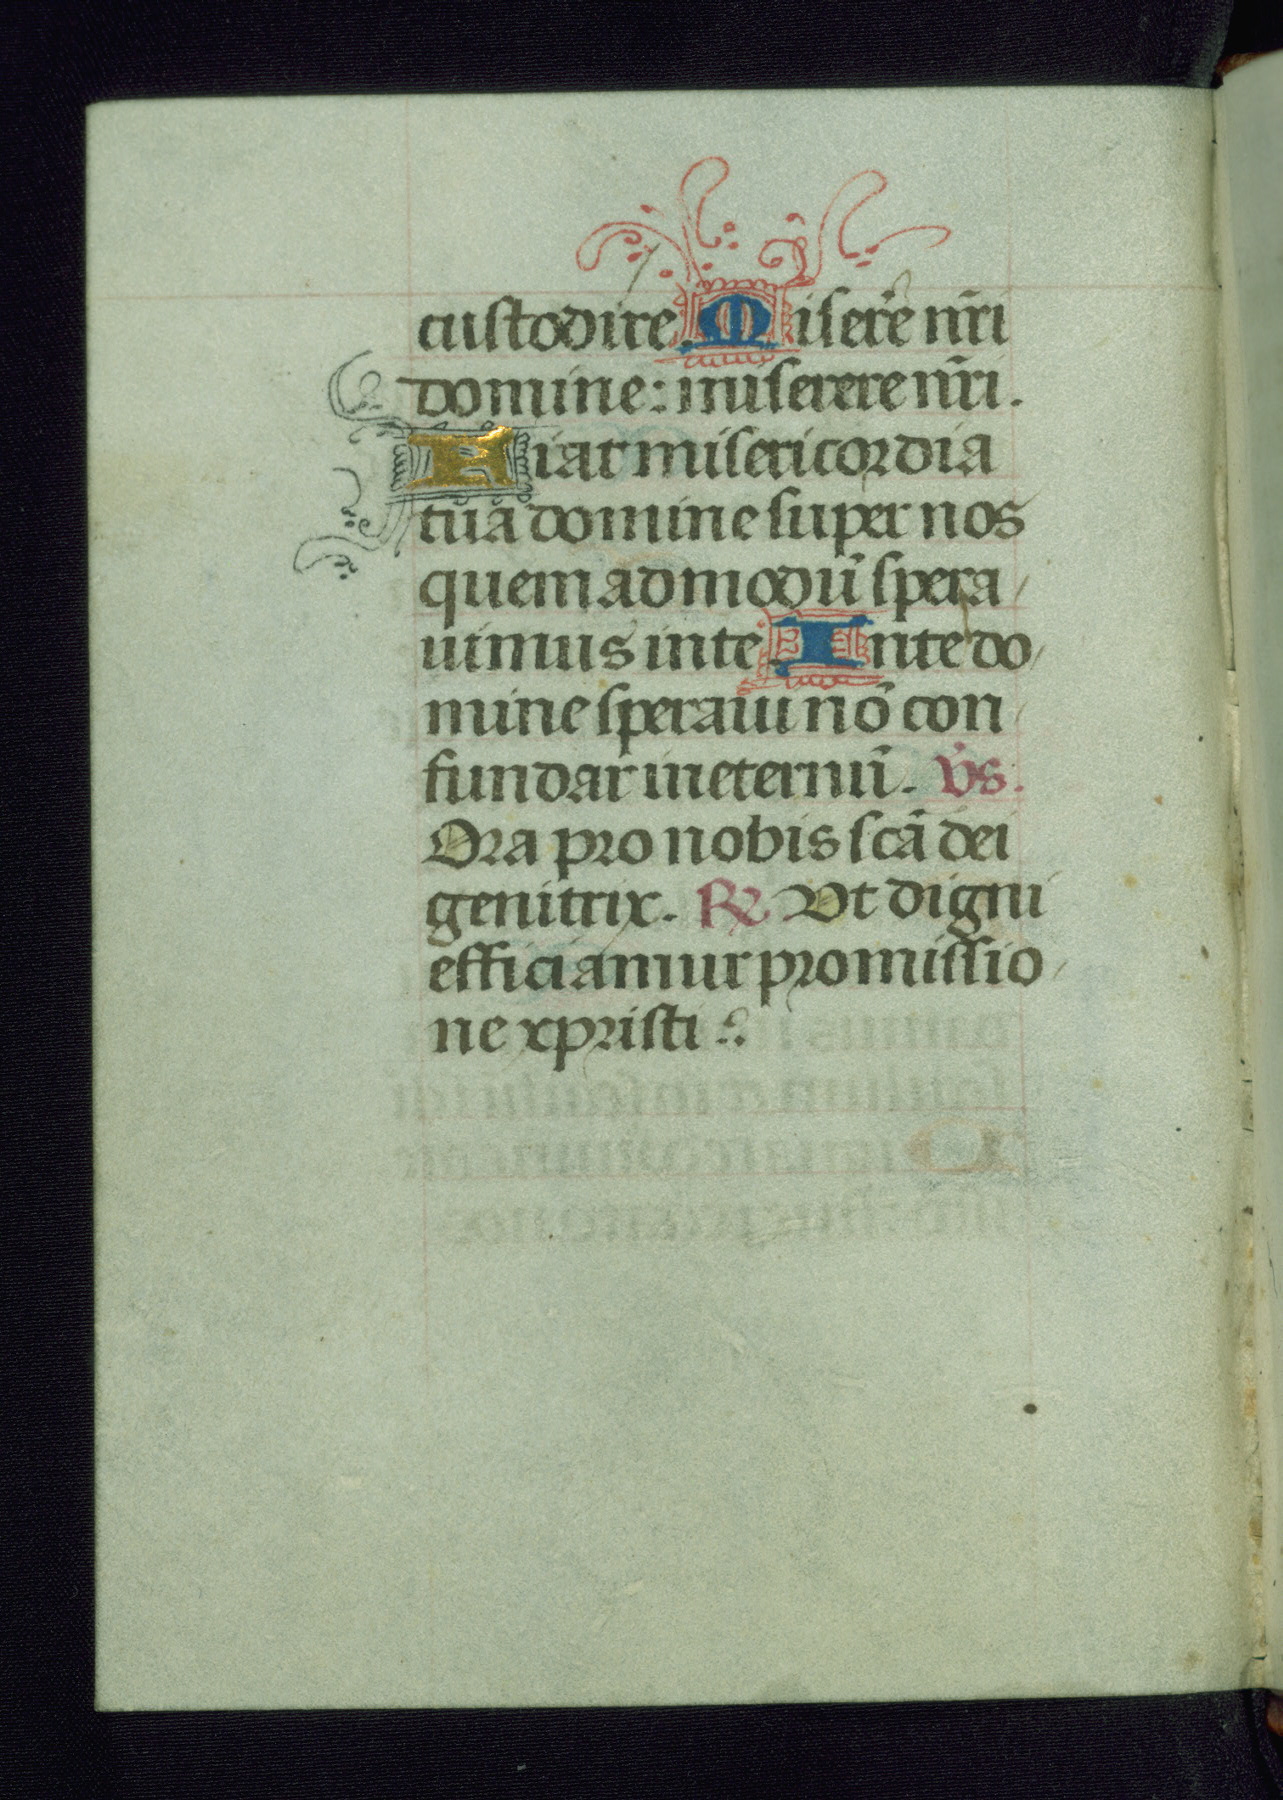 custodire. Miserẽ nr̃i
domine: miserere nr̃i.
Fiat misericordia
tua domine super nos
quem ad modũ spera
uimus in te. In te do
mine speraui nõ con
fundar in eternũ. v̾s.
Ora pro nobis scã dei
genitrix. ℟ Vt digni
efficiamur promissio
ne xpristi